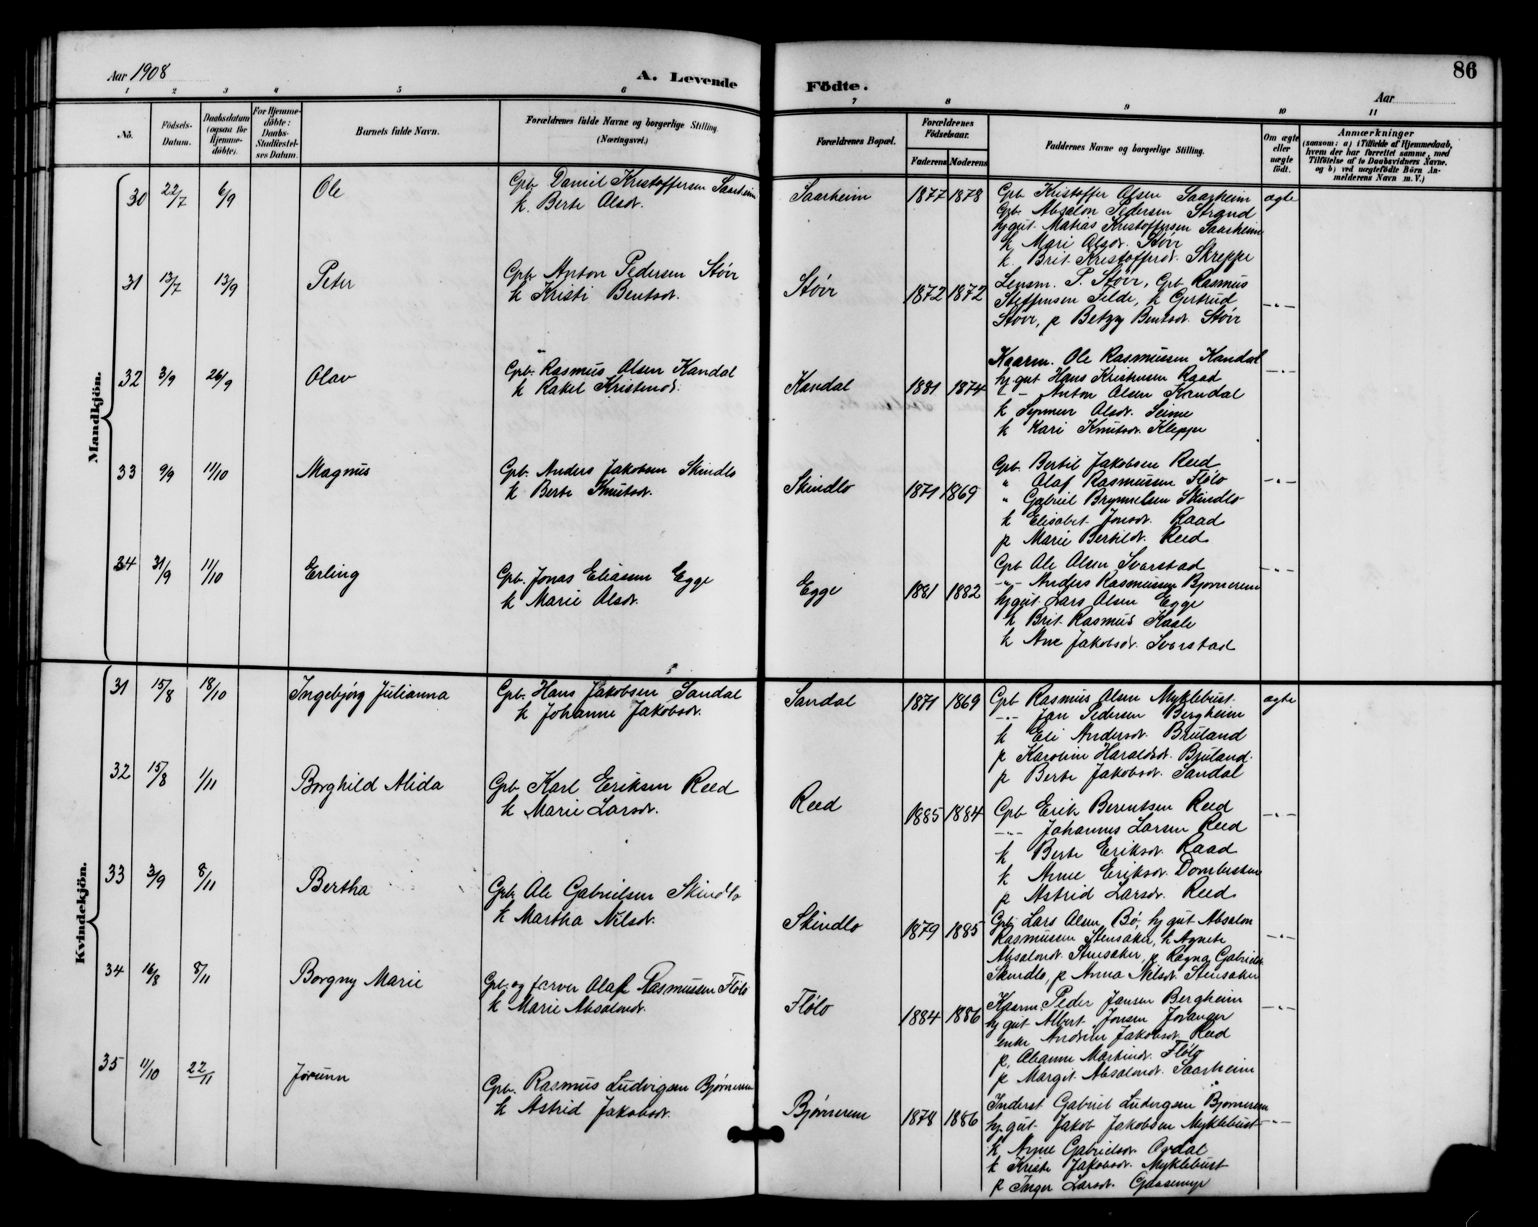 Aar 1908
A. Levende Födte.
86
Aar
1 2 3 4 5 6 7 8 9 10 11
No.
Födsels-Datum.
Daabsdatum (ogsaa for Hjemme-döbte).
For Hjemme-döbte: Daabs-Stadfæstel-ses Datum.
Barnets fulde Navn.
Forældrenes fulde Navne og borgerlige Stilling. (Næringsvei.)
Forældrenes Bopæl.
Forældrenes Födselsaar.
Faderens Moderens
Faddernes Navne og borgerlige Stilling.
Om ægte eller uægte födt.
Anmærkninger
(saasom: a) i Tilfælde af Hjemmedaab, hvem der har forrettet samme, med Tilföielse af to Daabsvidners Navne, og b) ved uægtefödte Börn An-melderens Navn m. V.)
Mandkjön.
30 22/7 6/9 Ole
Gpb. Daniel Kristoffersen Saarheim
k. Berte Olsdr.
Saarheim 1877 1878
Gpb. Kristoffer Olsen Saarheim ægte
Gpb. Absalon Pedersen Strand
hj.gut. Matias Kristoffersen Saarheim
k. Mari Olsdr. Støvr
k. Brit Kristoffersdr. Skreppe
31 13/7 13/9 Peter
Gpb. Anton Pedersen Støvr
k Kristi Bentsdr.
Støvr 1872 1872
Lensm. P. Støvr, Gpb. Rasmus
Steffensen Selde, k Gertrud
Støvr, p Betzy Bentsdr. Støvr
-"-
32 3/9 26/9 Olav
Gpb. Rasmus Olsen Kandal
k Rakel Kristensd.
Kandal 1881 1874
Kaarm. Ole Rasmussen Kandal
hj gut Hans Kristensen Raad
-"- Anton Olsen Kormdal
k Synneve Olsdr. Seime
k Kari Knutsdr. Kleppe
-"-
33 9/9 11/10 Magnus
Gpb. Anders Jakobsen Skindlo
k Berte Knutsdr.
Skindlo 1871 1869
Gpb. Bertil Jakobsen Reed
" Olaf Rasmussen Flølo
" Gabriel Brynnelsen Skindlo
k Elisabet Jonsdr. Raad
p Marie Bertildr. Reed
-"-
34 31/9 11/10 Erling
Gpb. Jonas Eliassen Egge
k Marie Olsdr.
Egge 1881 1882
Gpb Ole Olsen Svarstad
-"- Anders Rasmussen Bjørnerem
hj.gut Lars Olsen Egge
k Brit Rasmusd Kaale
k Ane Jakobsdr. Svarstad
-"-
Kvindekjön.
31 15/8 18/10 Ingebjørg Julianna
Gpb. Hans Jakobsen Sandal
k Johanne Jakobsdr.
Sandal 1871 1869
Gpb Rasmus Olsen Myklebust ægte
-"- Jan Pedersen Bergheim
k Eli Andersdr. Bruland
p Karoline Haraldsdr. Bruland
p Berte Jakobsdr. Sandal
32 15/8 1/11 Borghild Alida
Gpb Karl Eriksen Reed
k Marie Larsdr.
Reed 1885 1884
Gpb Erik Berentsen Reed
-"- Johannes Larsen Reed
k Berte Eriksdr. Raad
k Anne Eriksdr. Dombesten
p Astrid Larsdr. Reed
-"-
33 3/9 8/11 Bertha
Gpb Ole Gabrielsen Skindlo
k Martha Nilsdr.
Skindlo 1879 1885
Gpb Lars Olsen, Bø, hj gut Absalon
Rasmussen Stensaker, k Agnete
Absalonsdr. Stensaker, p Ragna Gabrielsdr
Skindlo, p Anna Nilsdr Stensaker
-"-
34 16/8 8/11 Borgny Marie
Gpb. og farver Olaf Rasmussen Fløle
k Marie Absalonsdr.
Fløle 1884 1886
Kaarm. Peder Jansen Bergheim
hj gut Albert Jonsen Joranger
enke Andrine Jakobsdr. Reed
p. Abanne Martinsdr. Fløle
p Margit Absalonsdr. Saarheim
-"-
35 11/10 22/11 Jorunn
Gpb. Rasmus Ludvigsen Bjørnerem
k Astrid Jakobsdr.
Bjørnerem 1878 1886
Inderst Gabriel Ludvigsen Bjørnerem
hj.gut. Jakob Jakobsen Myklebust
k Anne Gabrielsdr Ordal
k Kristi Jakobsdr. Myklebust
p Inger Larsdr. Gaasemyr
-"-